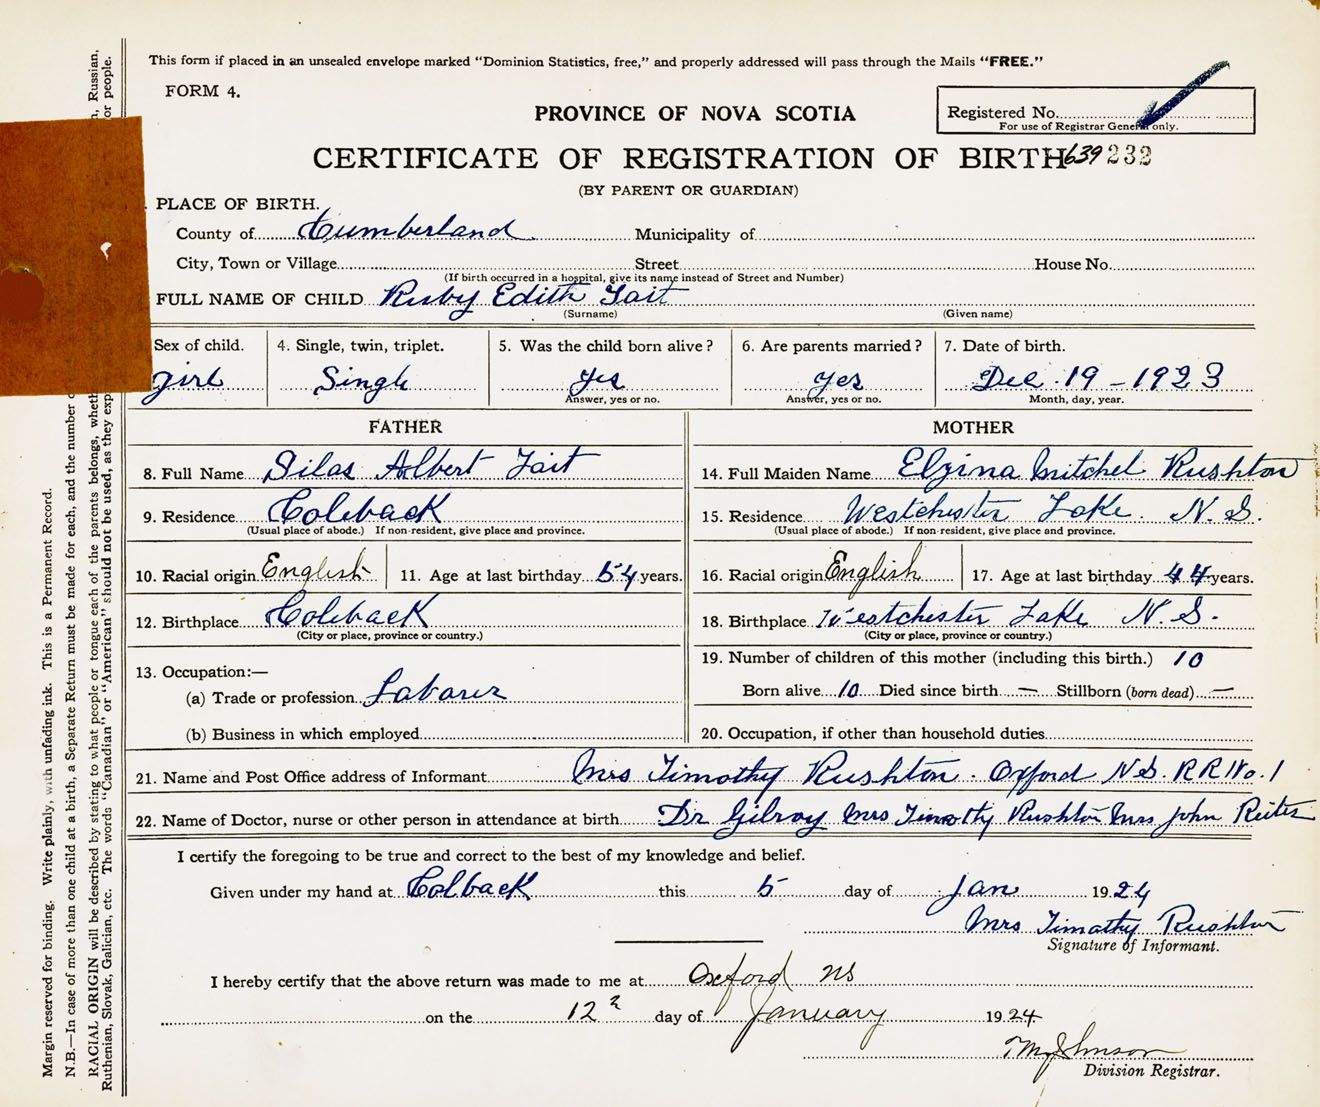 This form if placed in an unsealed envelope marked "Dominion Statistics, free," and properly addressed will pass through the Mails "FREE."
FORM 4.
PROVINCE OF NOVA SCOTIA
Registered No.
For use of Registrar General only.
CERTIFICATE OF REGISTRATION OF BIRTH 639 232
(BY PARENT OR GUARDIAN)
PLACE OF BIRTH.
County of Cumberland Municipality of
City, Town or Village Street House No.
(If birth occurred in a hospital, give its name instead of Street and Number)
FULL NAME OF CHILD Ruby Edith Tait
(Surname) (Given name)
Sex of child. 4. Single, twin, triplet. 5. Was the child born alive? 6. Are parents married? 7. Date of birth.
girl Single yes yes Dec. 19 - 1923
Answer, yes or no. Answer, yes or no. Month, day, year.
FATHER MOTHER
8. Full Name Silas Albert Tait 14. Full Maiden Name Elzina Mitchel Rushton
9. Residence Coleback 15. Residence Westchester Lake. N. S.
(Usual place of abode.) If non-resident, give place and province. (Usual place of abode.) If non-resident, give place and province.
10. Racial origin English 11. Age at last birthday 54 years. 16. Racial origin English 17. Age at last birthday 44 years.
12. Birthplace Coleback 18. Birthplace Westchester Lake N. S.
(City or place, province or country.) (City or place, province or country.)
13. Occupation:— 19. Number of children of this mother (including this birth.) 10
(a) Trade or profession Laborer Born alive 10 Died since birth — Stillborn (born dead) —
(b) Business in which employed 20. Occupation, if other than household duties
21. Name and Post Office address of Informant Mrs Timothy Rushton. Oxford N S. R R No. 1
22. Name of Doctor, nurse or other person in attendance at birth Dr Gilroy Mrs Timothy Rushton Mrs John Reiter
I certify the foregoing to be true and correct to the best of my knowledge and belief.
Given under my hand at Colback this 5 day of Jan 1924
Mrs Timothy Rushton
Signature of Informant.
I hereby certify that the above return was made to me at Oxford NS
on the 12 day of January 1924
Division Registrar.
Margin reserved for binding. Write plainly, with unfading ink. This is a Permanent Record.
N.B.—In case of more than one child at a birth, a Separate Return must be made for each, and the number
RACIAL ORIGIN will be described by stating to what people or tongue each of the parents belongs, wheth , Russian,
Ruthenian, Slovak, Galician, etc. The words "Canadian" or "American" should not be used, as they exp or people.